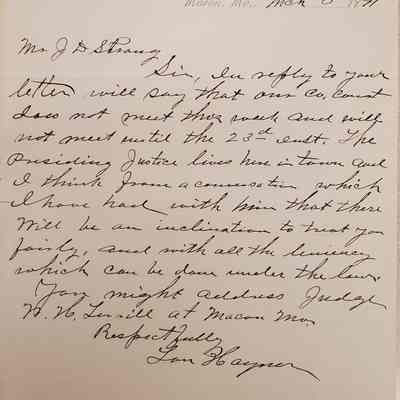 Macon, Mo.
Mr J D Strong
Sir, In reply to your
letter will say that our Co, Court
does not meet this week and will
not meet until the 23rd Inst. The
Presiding Justice lives here in town and
I think from a conversation which
I have had with him that there
Will be an inclination to treat you
fairly, and with all the leniency
which can be done under the law.
You might address Judge
at Macon Mo
Respectfully